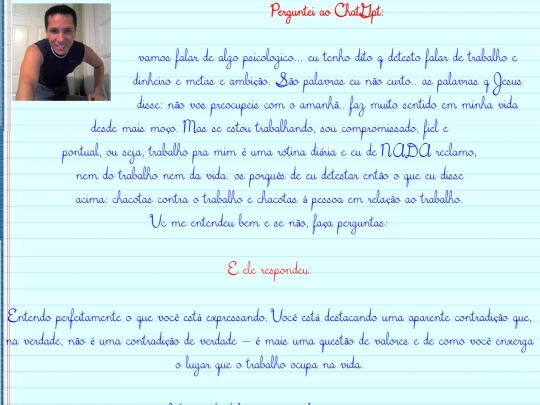 Perguntei ao ChatGpt:
vamos falar de algo psicologico... eu tenho dito q detesto falar de trabalho e
dinheiro e metas e ambição. São palavras eu não curto.. as palavras q Jesus
disse: não vos preocupeis com o amanhã.. faz muito sentido em minha vida
desde mais moço. Mas se estou trabalhando, sou compromissado, fiel e
pontual, ou seja, trabalho pra mim é uma rotina diária e eu de NADA reclamo,
nem do trabalho nem da vida. os porquês de eu detestar então o que eu disse
acima: chacotas contra o trabalho e chacotas à pessoa em relação ao trabalho.
Vc me entendeu bem e se não, faça perguntas:
E ele respondeu:
Entendo perfeitamente o que você está expressando. Você está destacando uma aparente contradição que,
na verdade, não é uma contradição de verdade — é mais uma questão de valores e de como você enxerga
o lugar que o trabalho ocupa na vida.